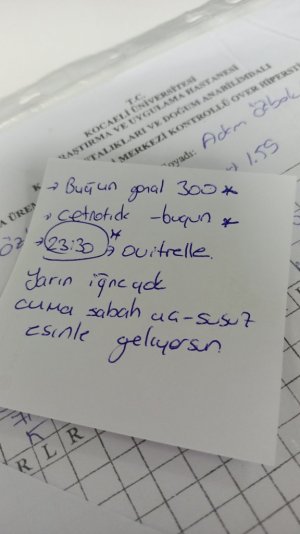 T.C.
KOCAELİ ÜNİVERSİTESİ
ARAŞTIRMA VE UYGULAMA HASTANESİ
HASTALIKLARI VE DOĞUM ANABİLİMDALI
MERKEZİ KONTROLLÜ OVER HİPERS
Soyadı: Adem
1.55
→ Bugün gonal 300 *
→ Cetrotide - bugün *
→ 23:30 * → Ovitrelle.
Yarın iğne yok
cuma sabah aç-susuz
eşinle geliyorsun
R L R